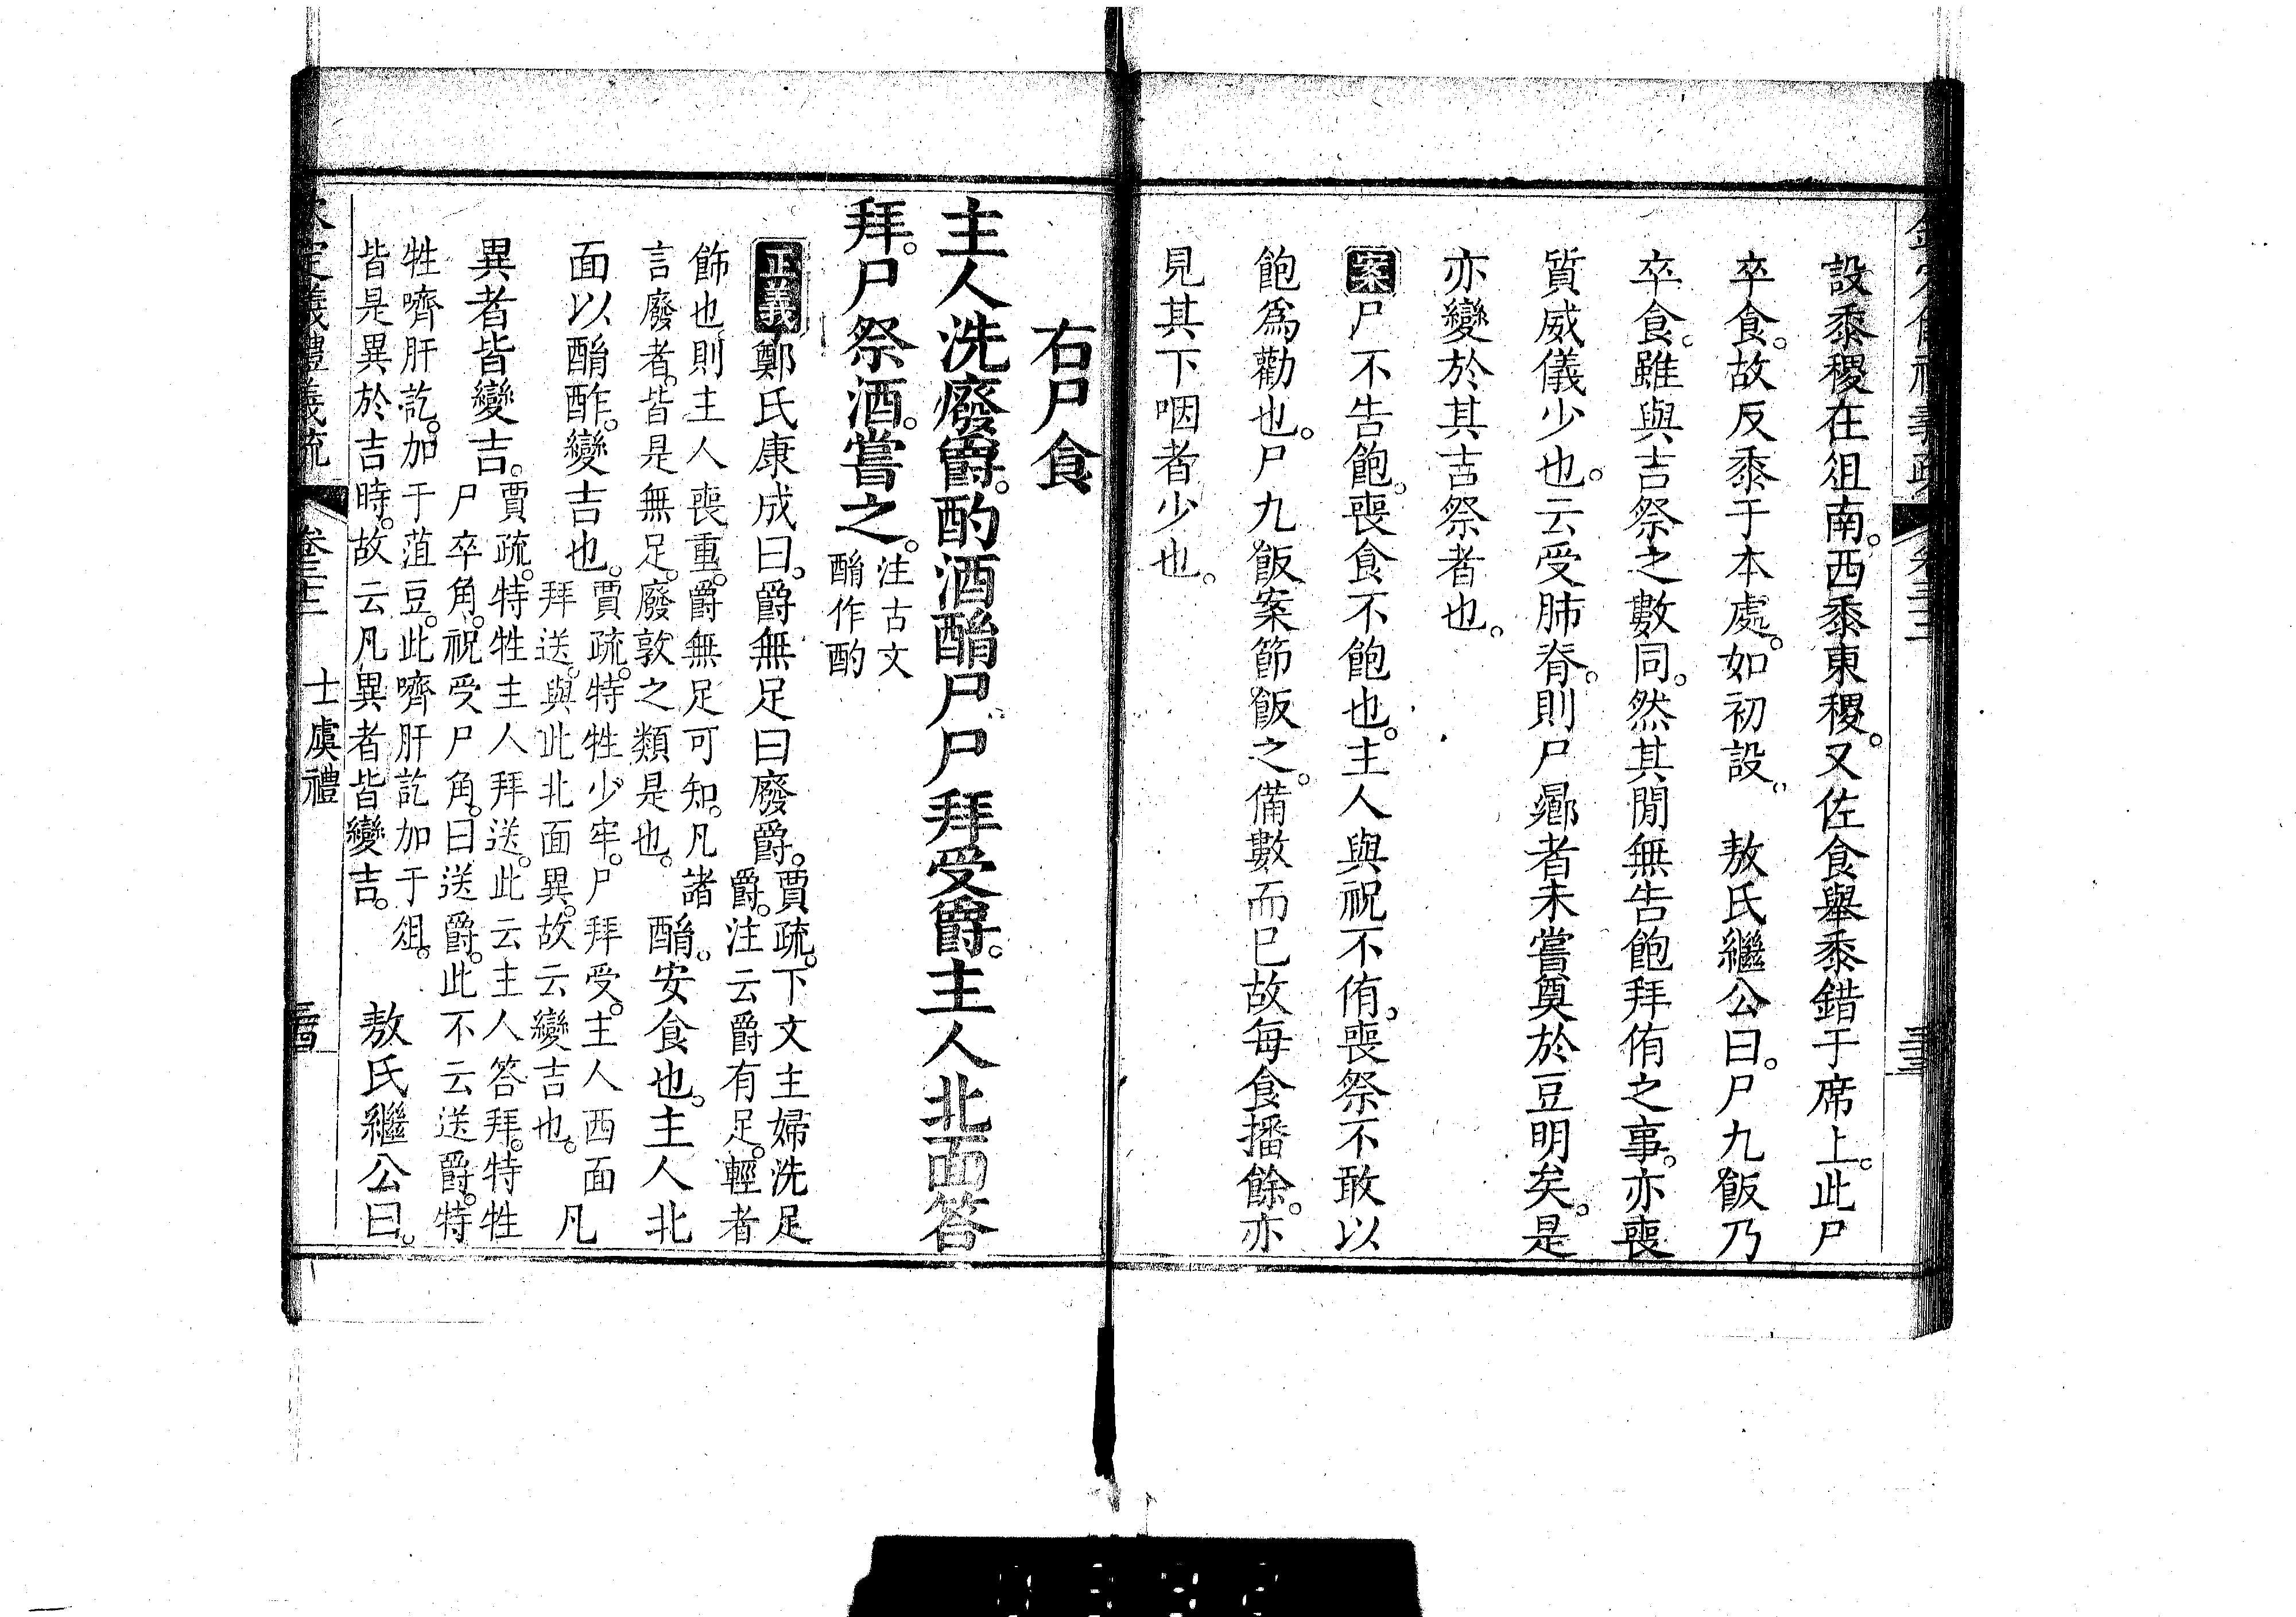 設黍稷在俎南。西黍東稷。又佐食舉黍錯于席上。此尸
卒食。故反黍于本處。如初設。 敖氏繼公曰。尸九飯乃
卒食。雖與吉祭之數同。然其閒無告飽拜侑之事。亦喪
質威儀少也。云受肺脊。則尸鄉者未嘗奠於豆明矣。是
亦變於其吉祭者也。
案尸不告飽。喪食不飽也。主人與祝不侑。喪祭不敢以
飽爲勸也。尸九飯案節飯之。備數而已故每食播餘。亦
見其下咽者少也。
右尸食
主人洗廢爵。酌酒酳尸尸拜受爵。主人北面答
拜。尸祭酒。嘗之。
注古文
酳作酌
正義鄭氏康成曰。爵無足曰廢爵。
賈疏。下文主婦洗足
爵。注云爵有足。輕者
飾也。則主人喪重。爵無足可知。凡諸
言廢者。皆是無足。廢敦之類是也。
酳。安食也。主人北
面以酳酢。變吉也。
賈疏。特牲少牢。尸拜受。主人西面
拜送。與此北面異。故云變吉也。
凡
異者皆變吉。
賈疏。特牲主人拜送。此云主人答拜。特牲
尸卒角。祝受尸角。曰送爵。此不云送爵。特
牲嚌肝訖。加于菹豆。此嚌肝訖加于俎。
皆是異於吉時。故云凡異者皆變吉。
敖氏繼公曰。
定儀禮義疏 卷三十三 士虞禮 三四